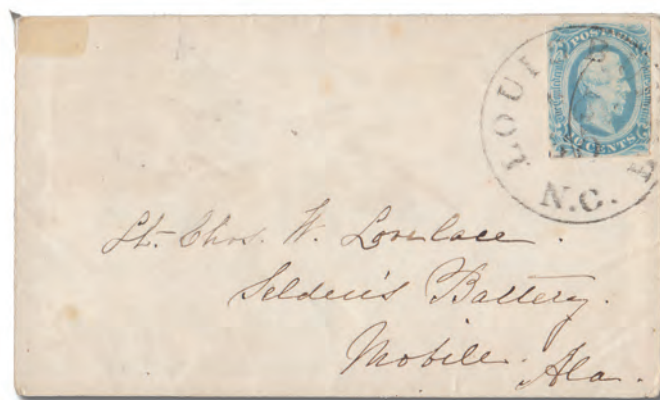 POSTAGE
CENTS
N.C.
Lt. Chas. W. Lovelace.
Selden's Battery.
Mobile. Ala.